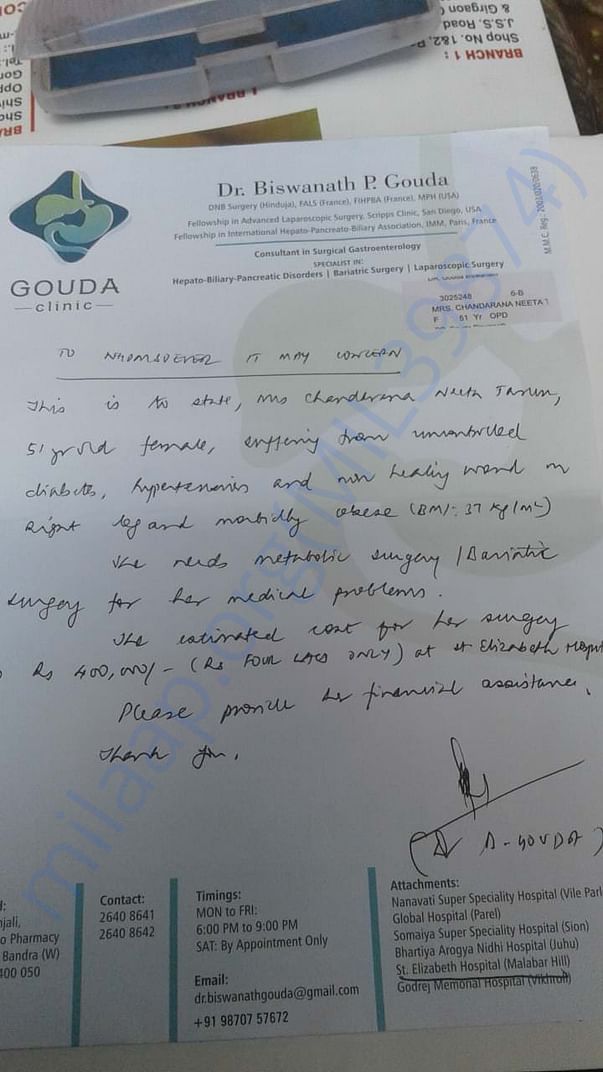 BRANCH 1 :
Shop No. 1&2,
J.S.S. Road
& Girgaon
Dr. Biswanath P. Gouda
DNB Surgery (Hinduja), FALS (France), FIHPBA (France), MPH (USA)
Fellowship in Advanced Laparoscopic Surgery, Scripps Clinic, San Diego, USA
Fellowship in International Hepato-Pancreato-Biliary Association, IMM, Paris, France
Consultant in Surgical Gastroenterology
SPECIALIST IN:
Hepato-Biliary-Pancreatic Disorders | Bariatric Surgery | Laparoscopic Surgery
M.M.C. Reg.- 2002/02/0638
GOUDA
clinic
3025248 6-B
MRS. CHANDARANA NEETA T
F 51 Yr OPD
TO WHOMSOEVER IT MAY CONCERN
This is to state, Mrs Chanderana Neeta Tarun,
51 yr old female, suffering from uncontrolled
diabetes, hypertension and non healing wound on
Right leg and morbidly obese (BMI: 37 kg/m²)
She needs metabolic surgery / Bariatric
surgery for her medical problems.
The estimated cost for her surgery
Rs 400,000/- (Rs FOUR LACS ONLY) at St Elizabeth Hospit
Please provide her financial assistance.
Thank you.
(Dr B. GOUDA)
milaap.org(MIL39974)
njali,
o Pharmacy
Bandra (W)
400 050
Contact:
2640 8641
2640 8642
Timings:
MON to FRI:
6:00 PM to 9:00 PM
SAT: By Appointment Only
Email:
dr.biswanathgouda@gmail.com
+91 98707 57672
Attachments:
Nanavati Super Speciality Hospital (Vile Parl
Global Hospital (Parel)
Somaiya Super Speciality Hospital (Sion)
Bhartiya Arogya Nidhi Hospital (Juhu)
St. Elizabeth Hospital (Malabar Hill)
Godrej Memorial Hospital (Vikhroli)